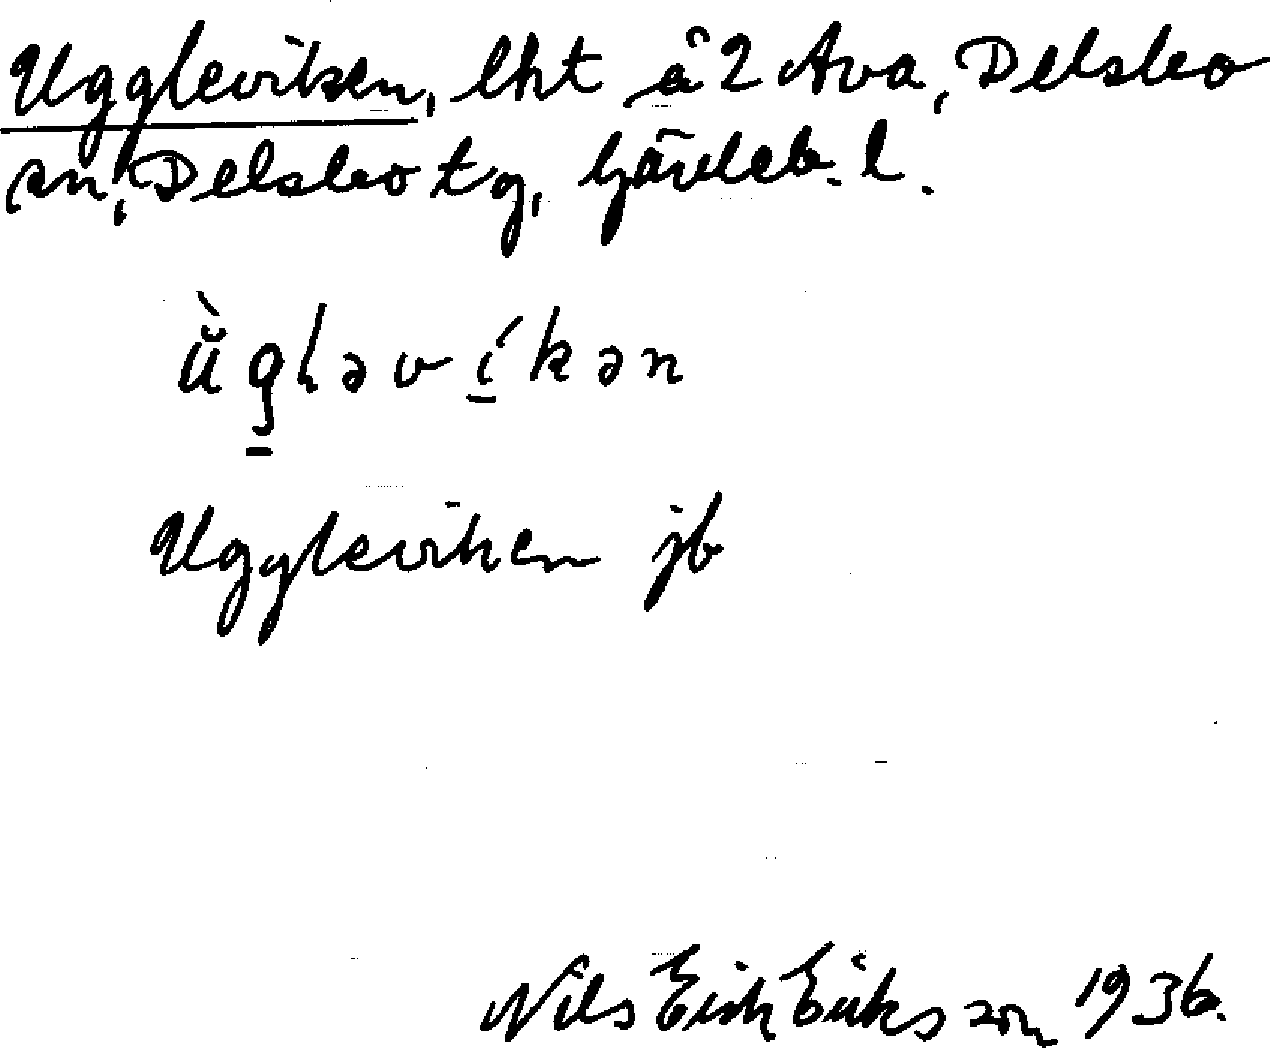 Uggleviken, lht å 2 Ava, Delsbo
sn, Delsbo tg, Gävleb. l.
ǜgləvíkən
Uggleviken jb
Nils Erik Eriksson 1936.